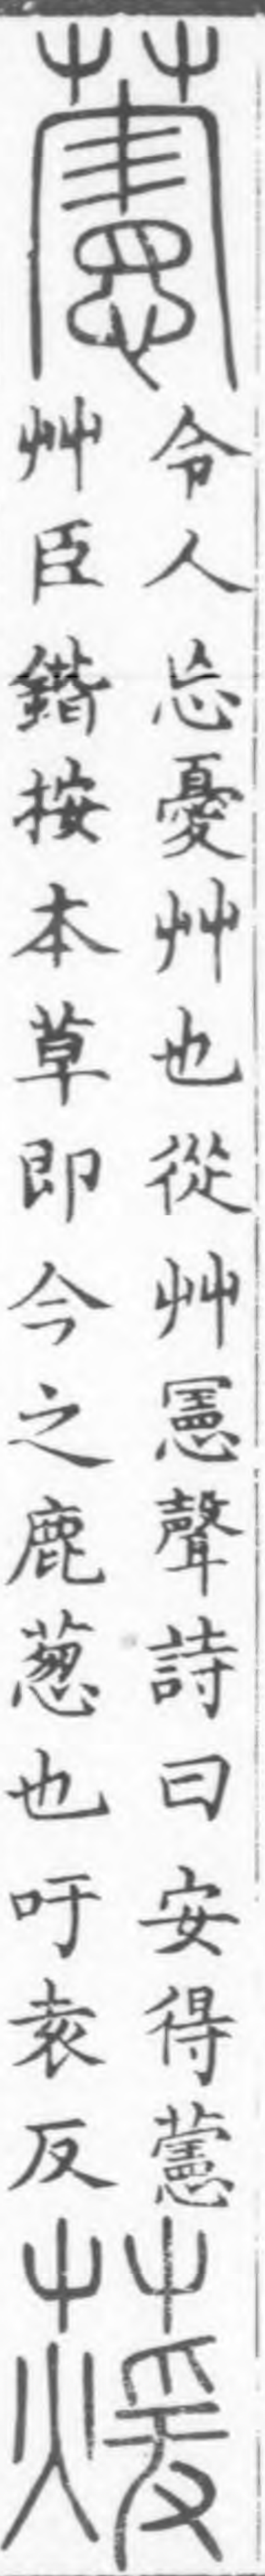 藼
令人忘憂艸也從艸憲聲詩曰安得藼
艸臣鍇按本草即今之鹿蔥也吁袁反
蕿